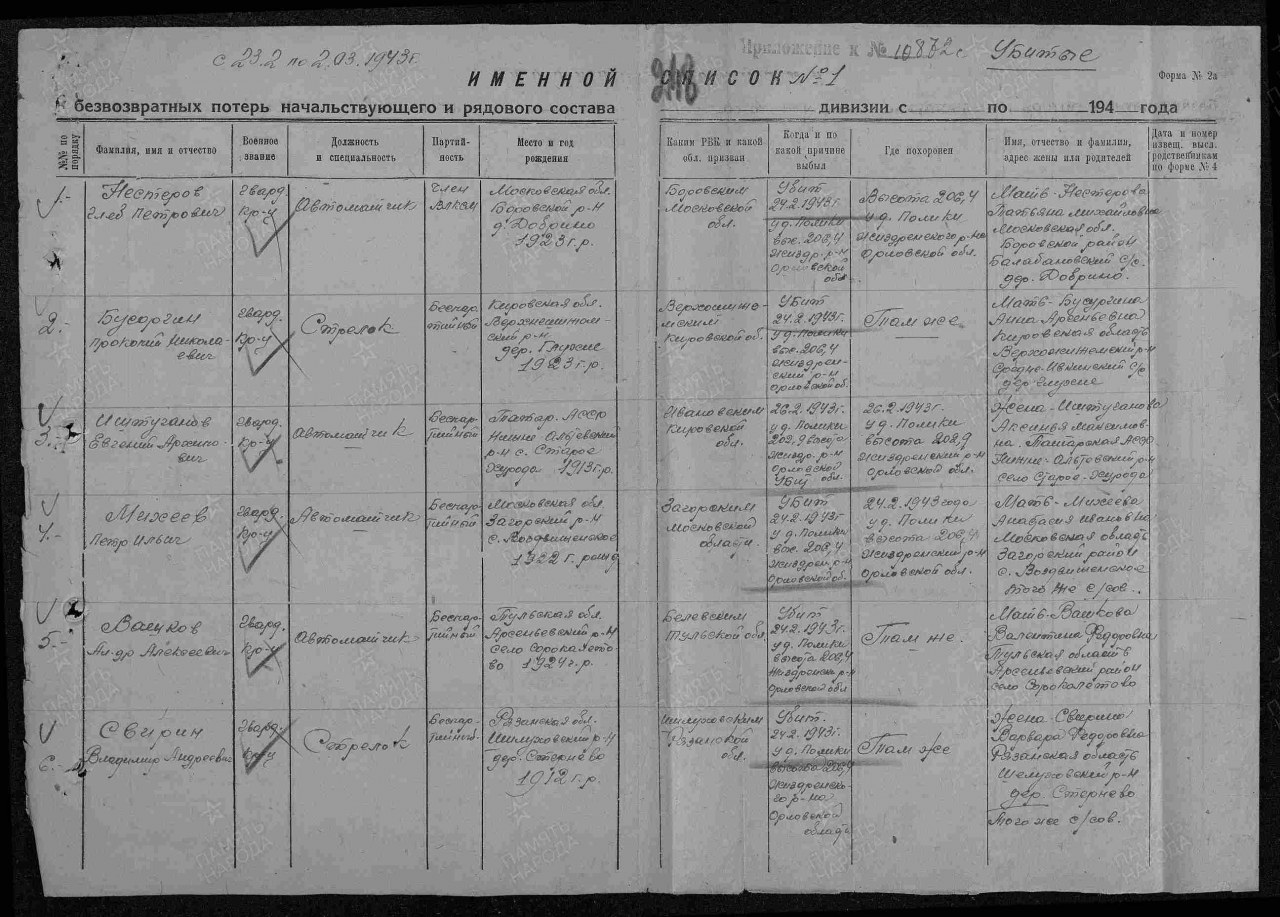 с 23.2 по 2.03.1943г
Приложение к № 10872с Убитые
ИМЕННОЙ СПИСОК №1
Форма № 2а
безвозвратных потерь начальствующего и рядового состава дивизии с по 194 года
№№ по порядку
Фамилия, имя и отчество
Военное звание
Должность и специальность
Партийность
Место и год рождения
Каким РВК и какой обл. призван
Когда и по какой причине выбыл
Где похоронен
Имя, отчество и фамилия, адрес жены или родителей
Дата и номер извещ. высл. родственникам по форме № 4
1.-
Нестеров
Глеб Петрович
Гвард.
кр-ц
Автоматчик
Член
ВЛКСМ
Московская обл.
Боровской р-н
д. Добрино
1923 г.р.
Боровским
Московской
обл.
Убит
24.2.1943г.
у д. Полики
выс. 206,4
Жиздр. р-н
Орловской
обл.
Высота 206,4
у д. Полики
Жиздренского р-на
Орловской обл.
Мать-Нестерова
Татьяна Михайловна
Московская обл.
Боровской район
Балабановский с/с.
дер. Добрино.
2.-
Бусоргин
Прокопий Никола-
евич
Гвард.
кр-ц
Стрелок
Беспар-
тийный
Кировская обл.
ский р-н
1923 г.р.
Кировской об.
Убит
24.2.1943г.
у д. Полики
выс. 206,4
Жиздрен-
ский р-н
Орловской об.
Там же
Мать-
Анна Арсеньевна
Кировская область
Верхошижемский р-н
3.-
Иштуганов
Евгений Архипо-
вич
Гвард.
кр-ц
Автоматчик
Беспар-
тийный
Татар. АССР
р-н с. Старое
1913 г.р.
Ивановским
Кировской
обл.
26.2.1943г.
у д. Полики
Жиздр. р-н
Орловской
Убит обл.
26.2.1943г.
у д. Полики
высота 202,9
Жиздренский р-н
Орловской обл.
Жена-Иштуганова
Аксинья Максимов-
на. Татарская АССР
4.-
Михеев
Петр Ильич
Гвард.
кр-ц
Автоматчик
Беспар-
тийный
Московская обл.
Загорский р-н
с. Воздвиженское
1922 г. рожд
Загорским
Московской
области.
Убит
24.2.1943г
у д. Полики
выс. 206,4
Жиздрен. р-н
Орловской об.
24.2.1943 года
у д. Полики
высота 206,4
Жиздренский р-н
Орловской обл.
Мать-Михеева
Анастасия Ивановна
Московская область
Загорский район
с. Воздвиженское
того же с/сов.
5.-
Ал-др Алексеевич
Гвард.
кр-ц
Автоматчик
Беспар-
тийный
Тульская обл.
Арсеньевский р-н
1924 г.р.
Белевским
Тульской обл.
Убит
24.2.1943г.
у д. Полики
высота 206,4
Жиздренский р-н
Орловской обл
Там же.
Валентина Федоровна
Тульская область
Арсеньевский район
6.-
Свирин
Владимир Андреевич
Гвард.
кр-ц
Стрелок
Беспар-
тийный.
Рязанская обл.
1912 г.р.
Рязанской
обл.
Убит.
24.2.1943г.
у д. Полики
высота 206,4
Жиздренско-
го р-на
Орловской
область
Там же
Жена Свирина
Варвара Федоровна
Рязанская область
того же с/сов.
ПАМЯТЬ НАРОДА